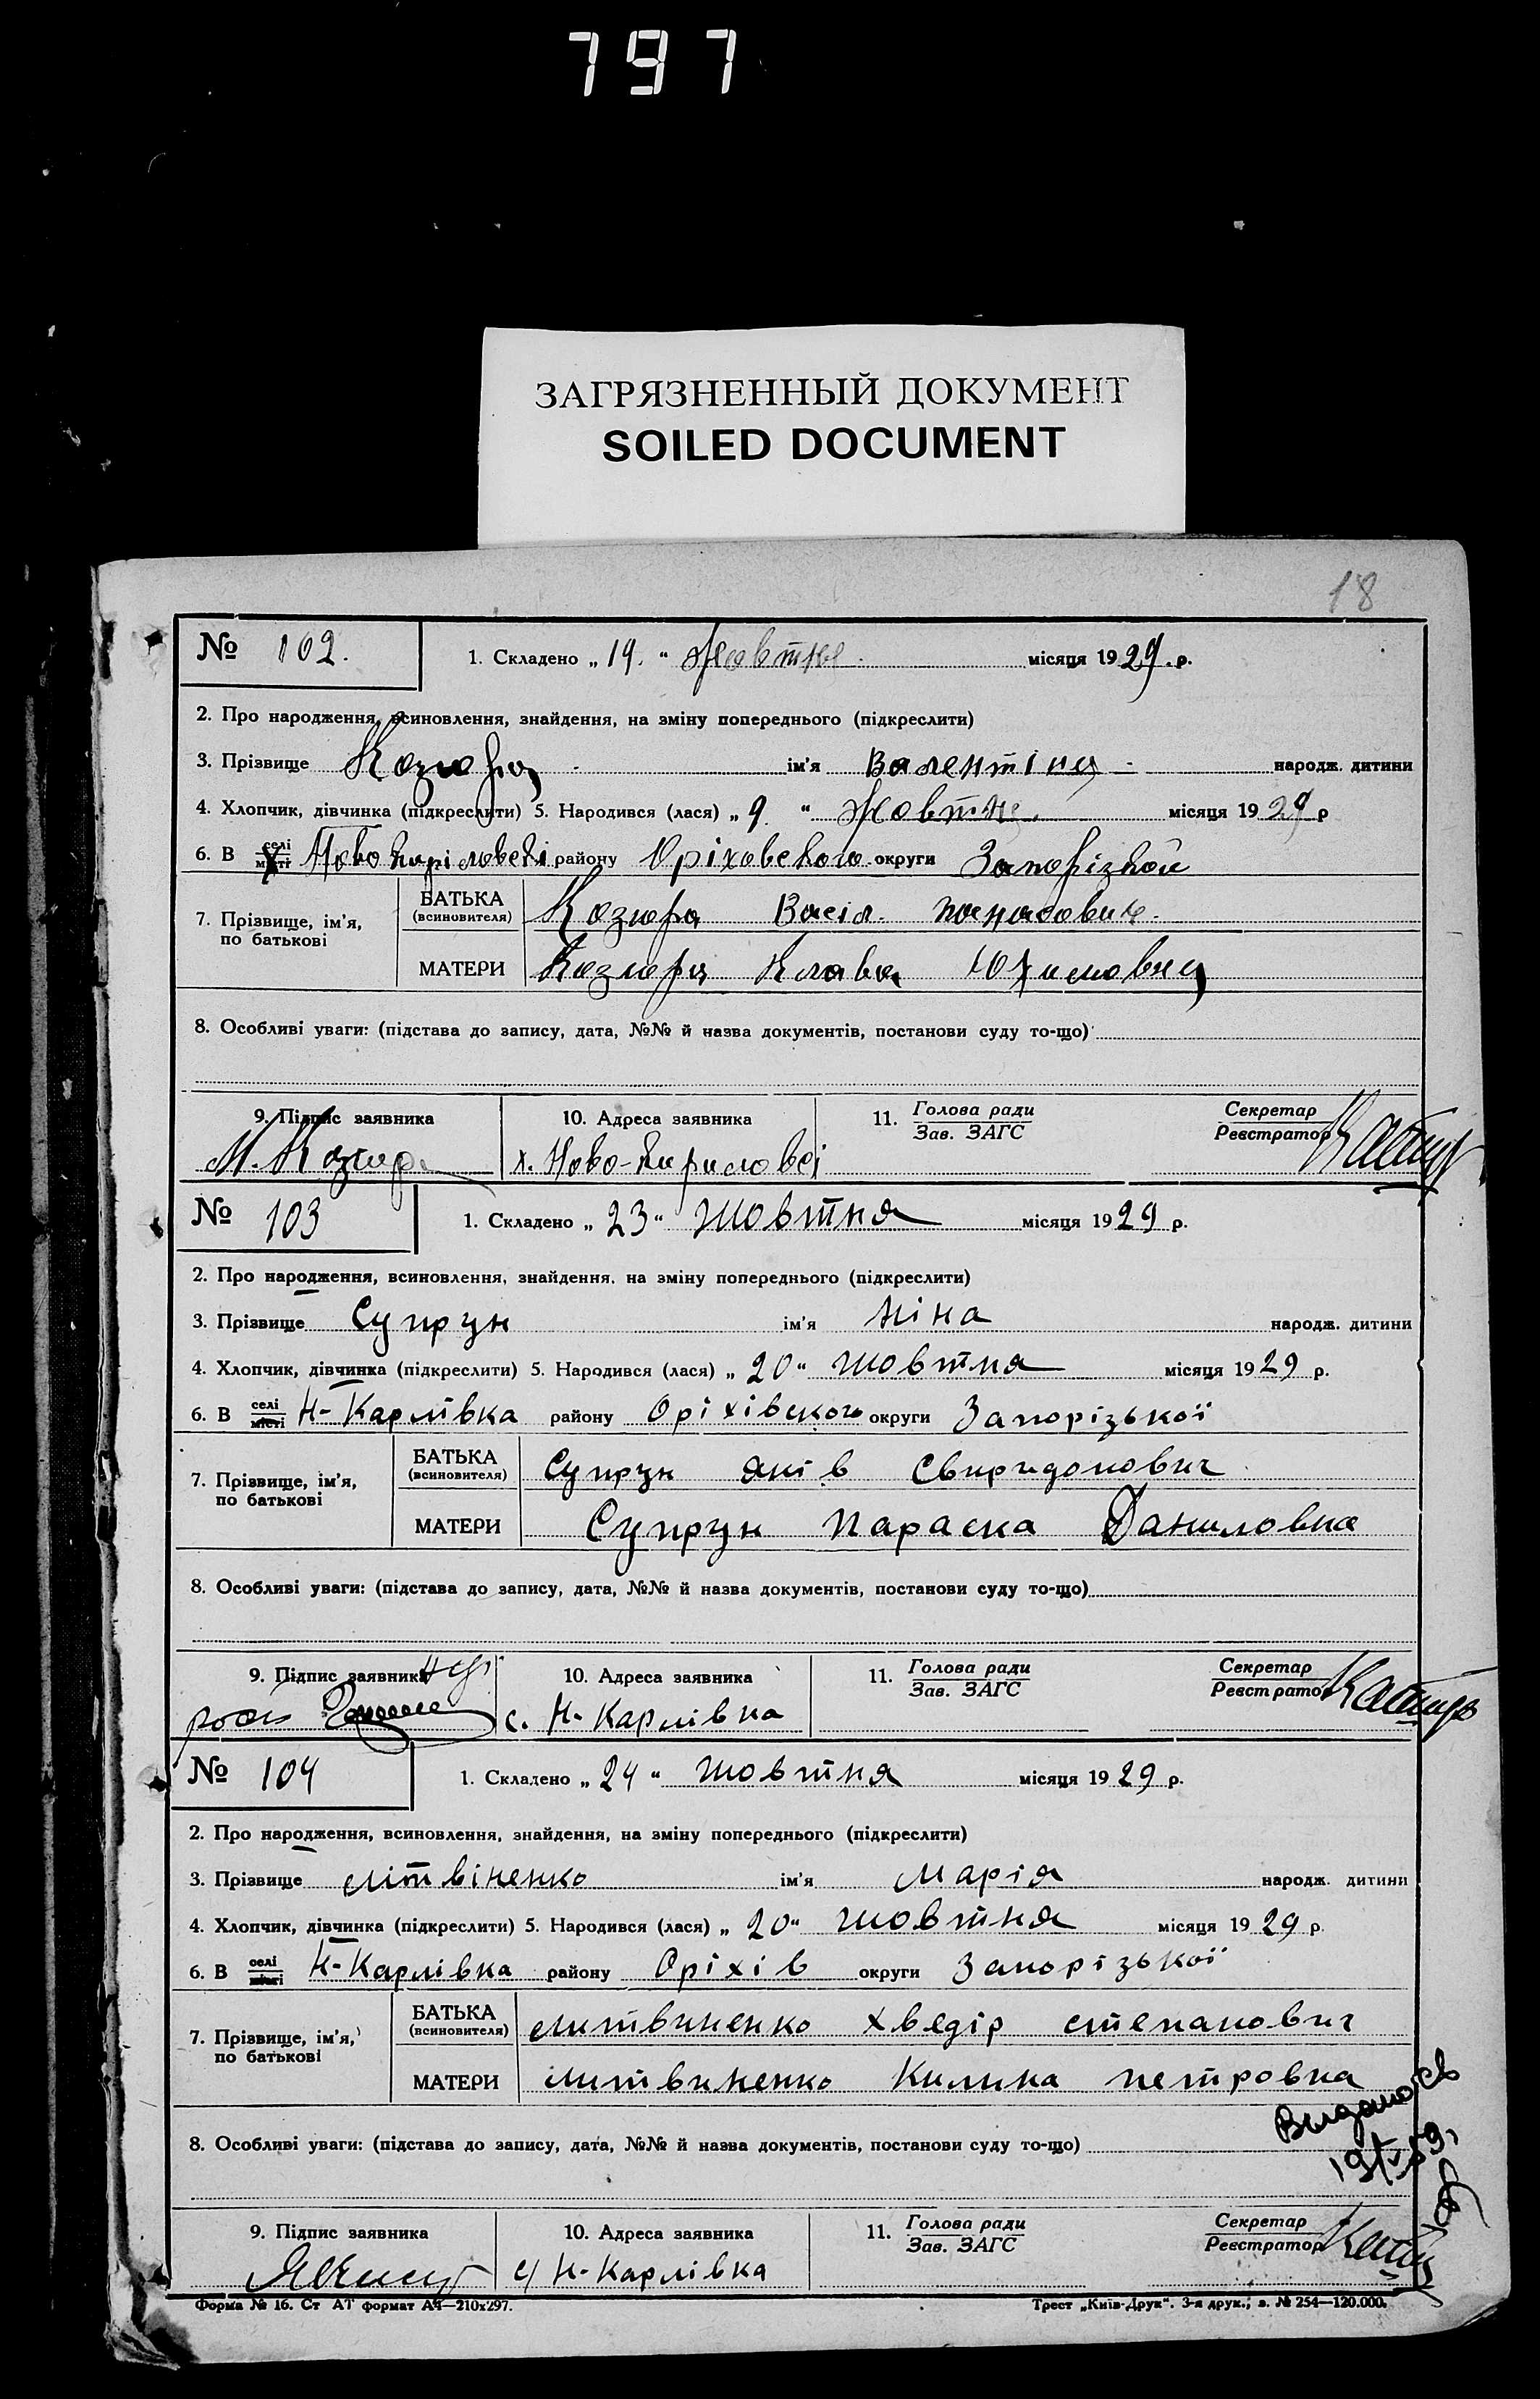 797
ЗАГРЯЗНЕННЫЙ ДОКУМЕНТ
SOILED DOCUMENT
18
№ 102. 1. Складено „19.“ Жовтня місяця 1929. р.
2. Про народження, всиновлення, знайдення, на зміну попереднього (підкреслити)
3. Прізвище Козюра ім'я Валентіна народж. дитини
4. Хлопчик, дівчинка (підкреслити) 5. Народився (лася) „9“ Жовтня місяця 1929 р
6. В селі місті району Оріховського округи Запорізької
7. Прізвище, ім'я, по батькові
БАТЬКА (всиновителя) Козюра Васіл Панасович
МАТЕРИ Козюра Клава
8. Особливі уваги: (підстава до запису, дата, №№ й назва документів, постанови суду то-що)
9. Підпис заявника 10. Адреса заявника 11. Голова ради Зав. ЗАГС Секретар Реєстратор
М. Козюра х. Ново-Кириловці
№ 103 1. Складено „23“ Жовтня місяця 1929 р.
2. Про народження, всиновлення, знайдення, на зміну попереднього (підкреслити)
3. Прізвище Супрун ім'я Ніна народж. дитини
4. Хлопчик, дівчинка (підкреслити) 5. Народився (лася) „20“ Жовтня місяця 1929 р.
6. В селі місті Н-Карлівка району Оріхівського округи Запорізької
7. Прізвище, ім'я, по батькові
БАТЬКА (всиновителя) Супрун Яків Свиридонович
МАТЕРИ Супрун Параска Даниловна
8. Особливі уваги: (підстава до запису, дата, №№ й назва документів, постанови суду то-що)
9. Підпис заявника 10. Адреса заявника 11. Голова ради Зав. ЗАГС Секретар Реєстратор
с. Н-Карлівка
№ 104 1. Складено „24“ Жовтня місяця 1929 р.
2. Про народження, всиновлення, знайдення, на зміну попереднього (підкреслити)
3. Прізвище Літвіненко ім'я Марія народж. дитини
4. Хлопчик, дівчинка (підкреслити) 5. Народився (лася) „20“ Жовтня місяця 1929 р.
6. В селі місті Н-Карлівка району Оріхів округи Запорізької
7. Прізвище, ім'я, по батькові
БАТЬКА (всиновителя) Литвиненко Хведір Степанович
МАТЕРИ Литвиненко Килина Петровна
8. Особливі уваги: (підстава до запису, дата, №№ й назва документів, постанови суду то-що)
9. Підпис заявника 10. Адреса заявника 11. Голова ради Зав. ЗАГС Секретар Реєстратор
Н-Карлівка
Форма № 16. Ст АТ формат А4—210х297. Трест „Київ-Друк“. 3-я друк., з. № 254—120.000.